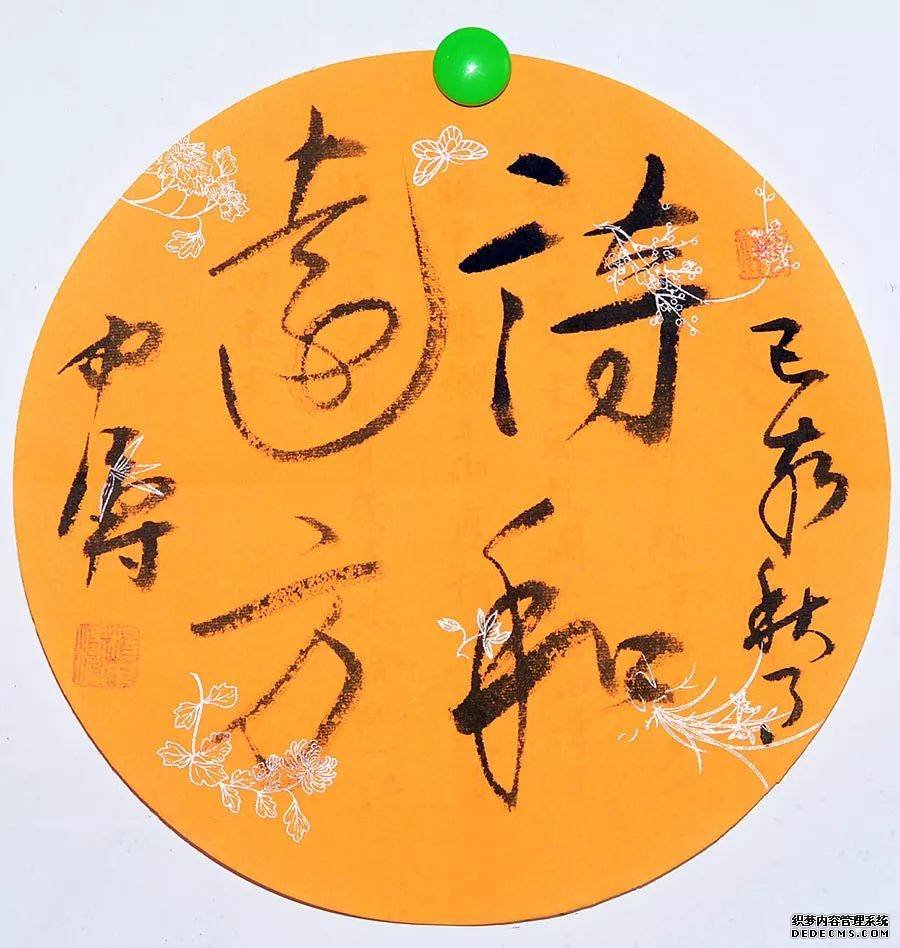 己亥秋月
诗和
遠方
织梦内容管理系统
DEDECMS.COM